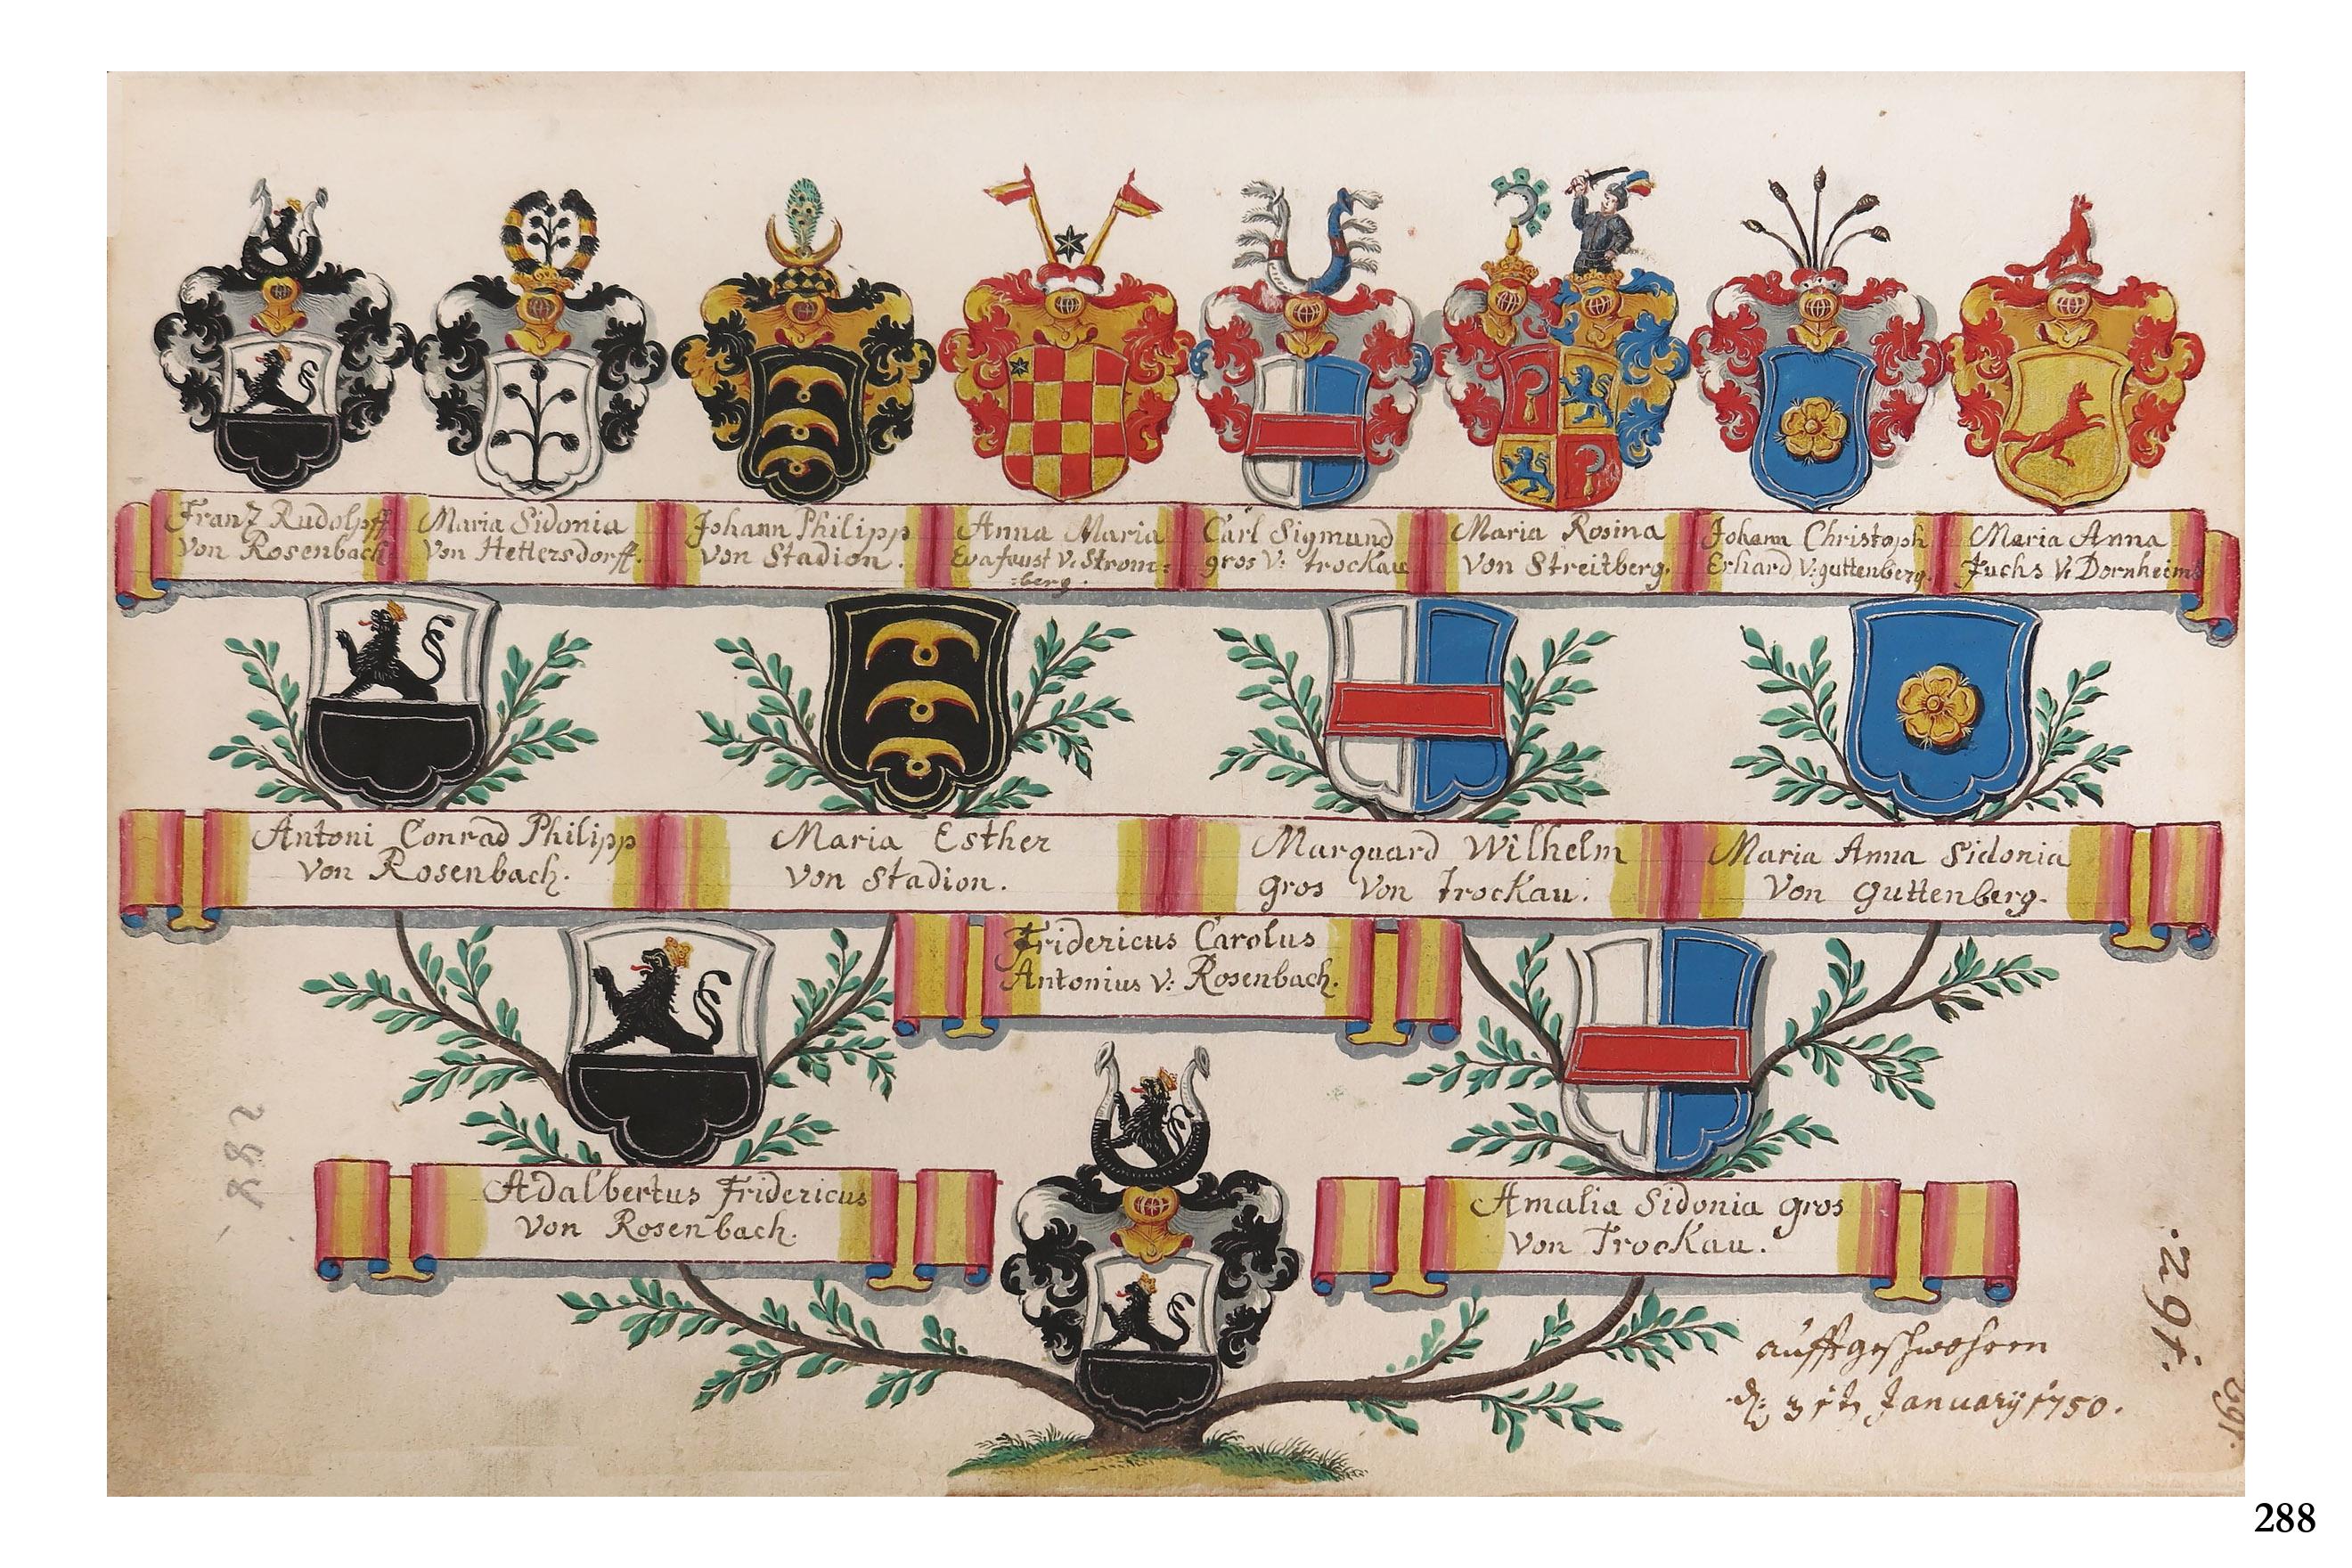 Franz Rudolpff
von Rosenbach
Maria Sidonia
von Hettersdorff.
Johann Philipp
von Stadion.
Anna Maria
Eva faust v: Strom=
=berg.
Carl Sigmund
gros v: trockau
Maria Rosina
von Streitberg.
Johann Christoph
Erhard v: guttenberg.
Maria Anna
Fuchs v: Dornheim
Antoni Conrad Philipp
von Rosenbach.
Maria Esther
von Stadion.
Marquard Wilhelm
gros von trockau.
Maria Anna Sidonia
von guttenberg.
Fridericus Carolus
Antonius v: Rosenbach.
Adalbertus Fridericus
von Rosenbach.
Amalia Sidonia gros
von Trockau.
auffgeschwohren
d: 31t January 1750.
288
.291.
291.
288